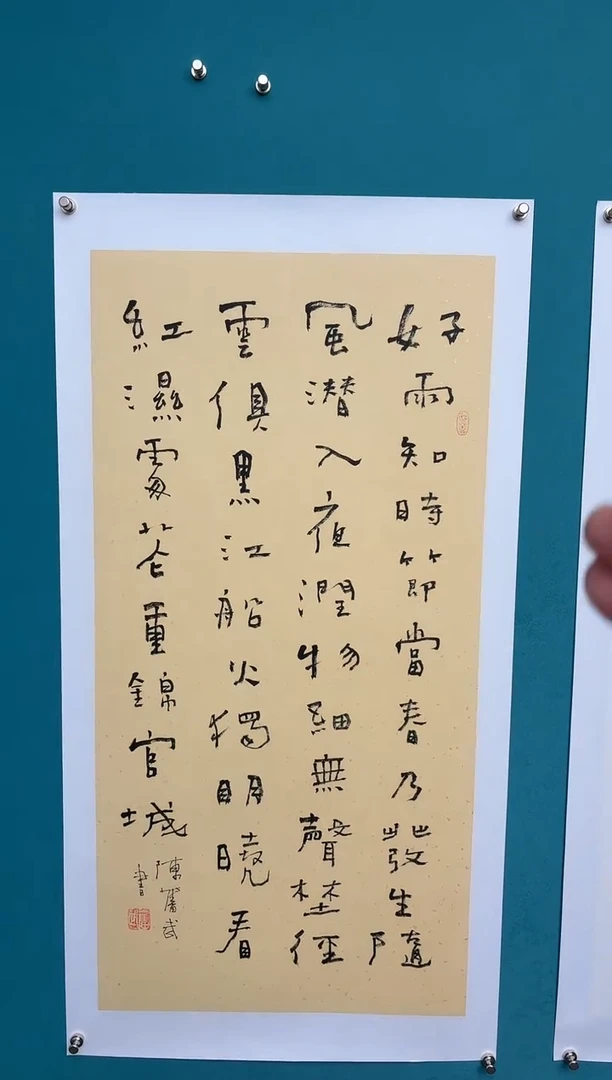 好雨知時節當春乃發生隨
風潜入夜潤物細無聲埜徑
雲俱黑江船火獨明曉看
紅濕處花重錦官城
陳
武
書